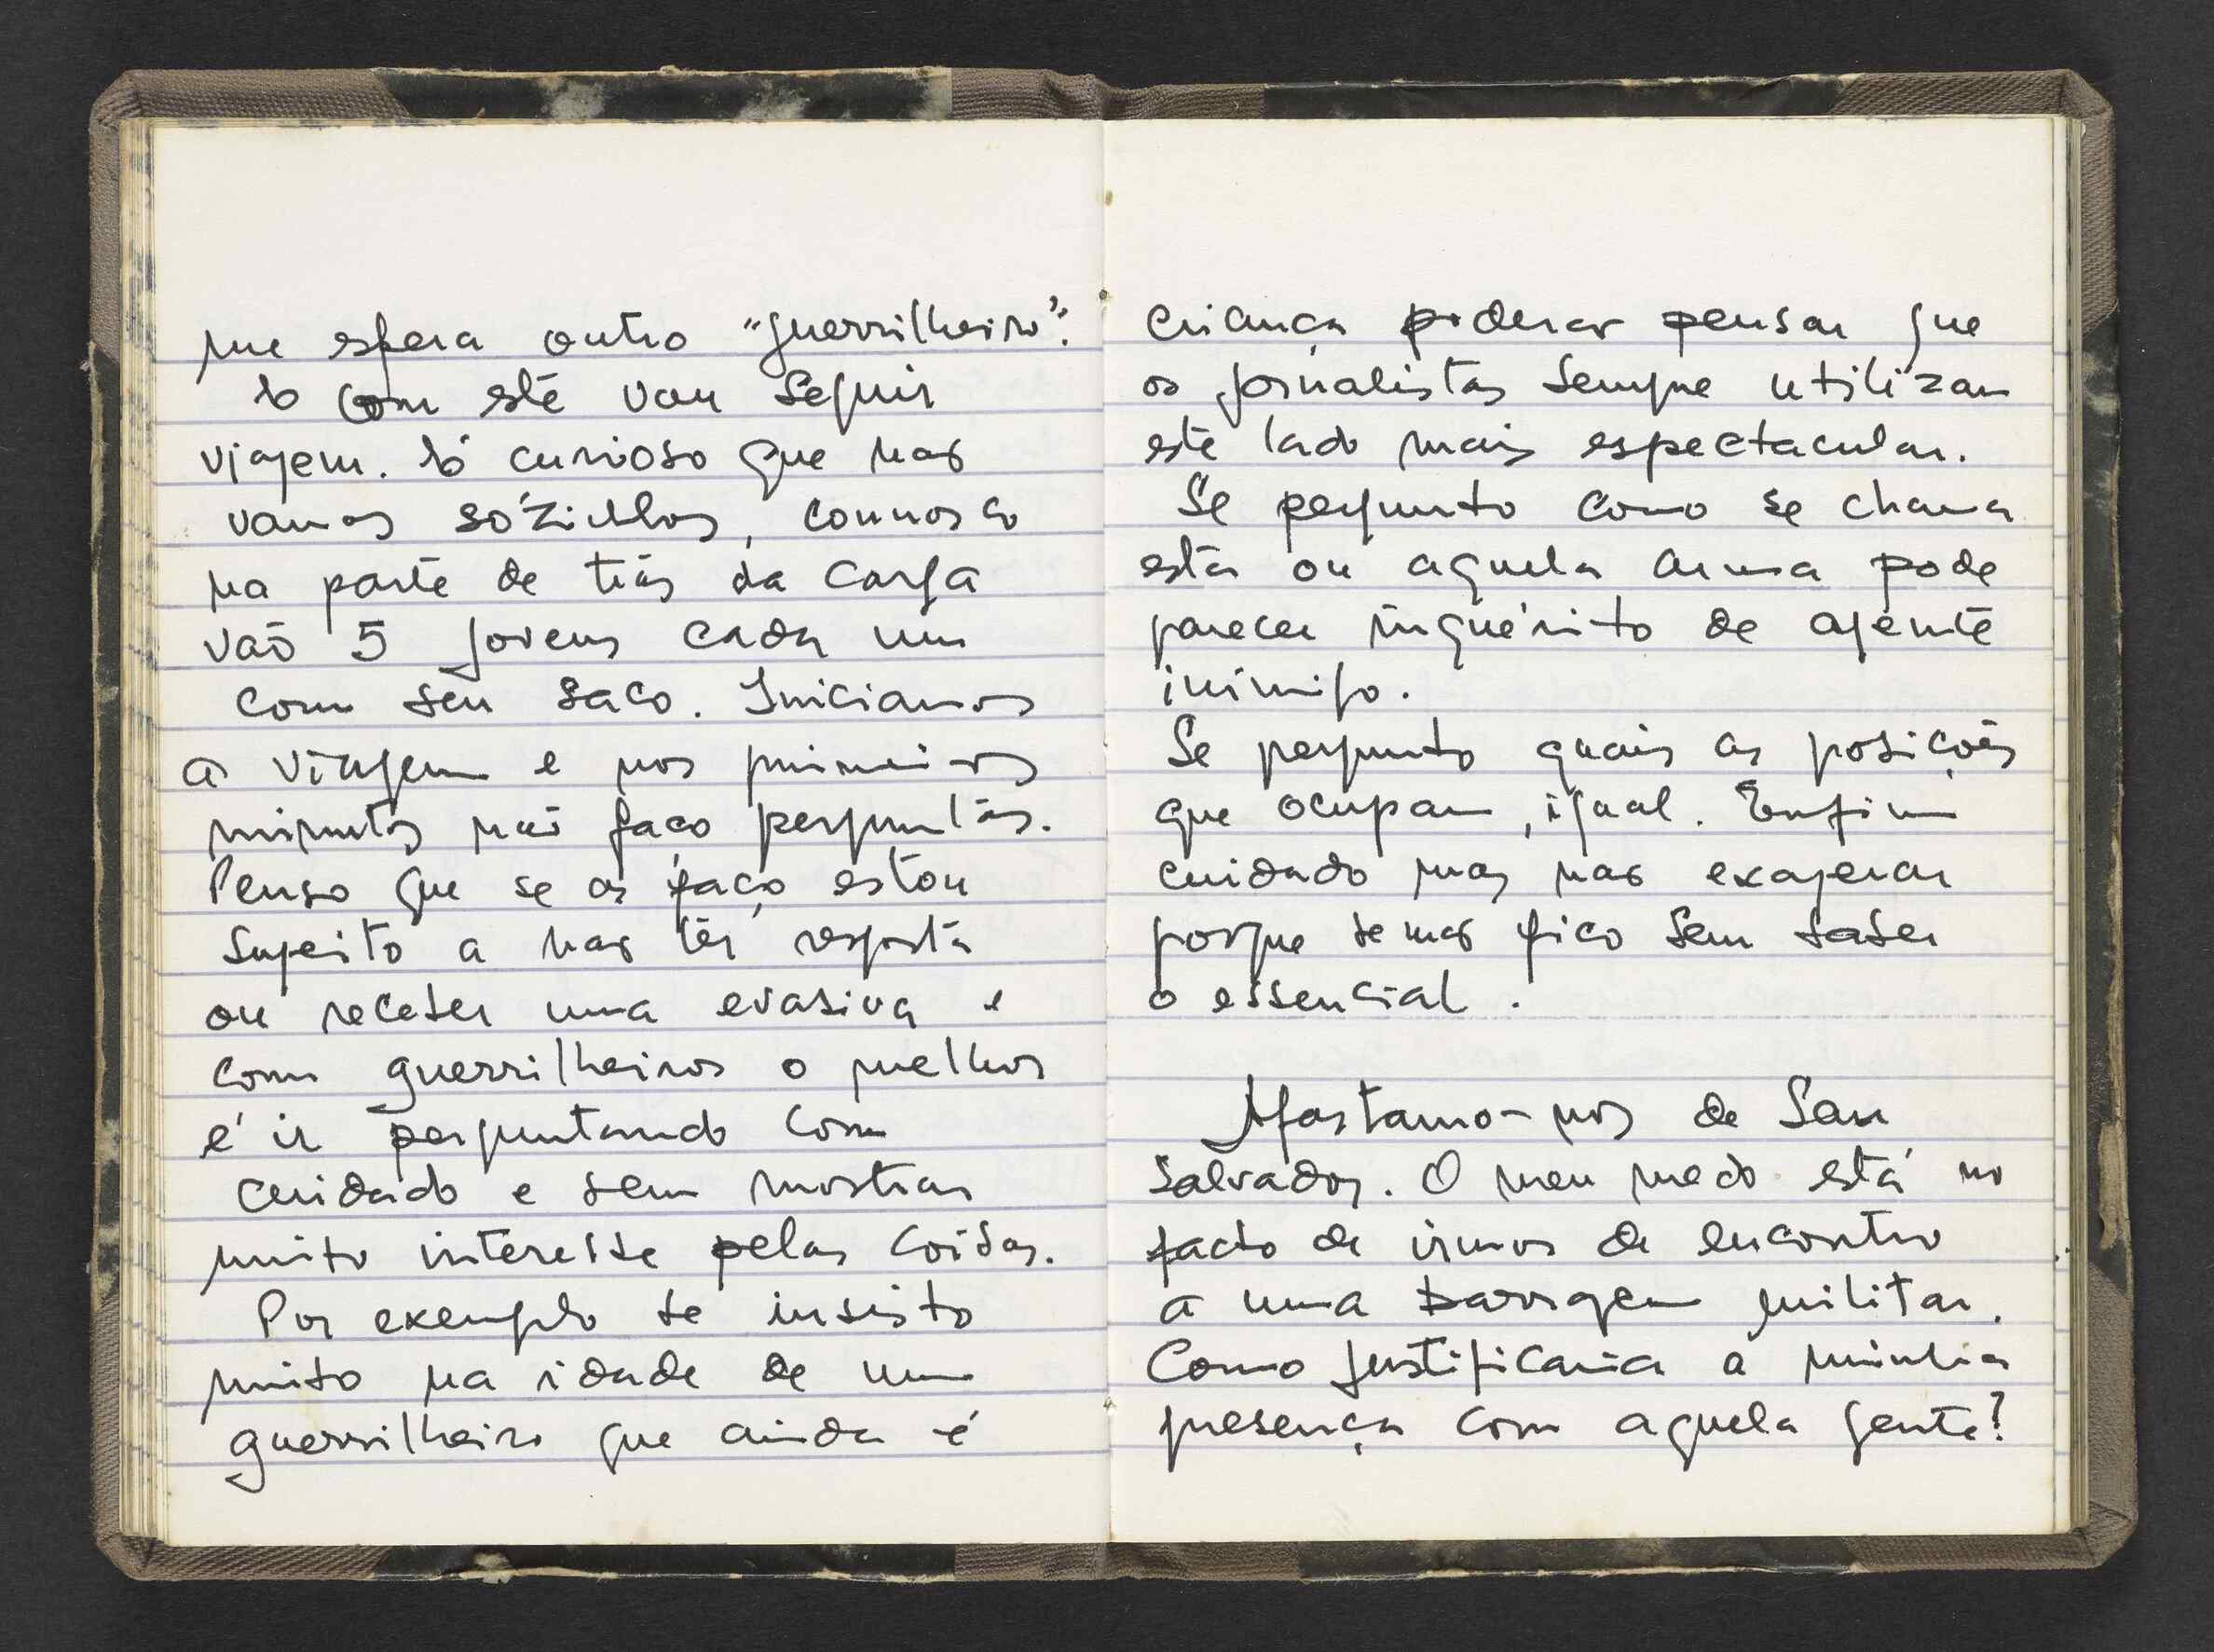 me espera outro "guerrilheiro".
É com este vou seguir
viagem. É curioso que não
vamos sózinhos, connosco
na parte de trás da carga
vão 5 jovens cada um
com seu saco. Iniciamos
a viagem e nos primeiros
minutos não faço perguntas.
Penso que se as faço estou
sujeito a não ter resposta
ou receber uma evasiva e
com guerrilheiros o melhor
é ir perguntando com
cuidado e sem mostrar
muito interesse pelas coisas.
Por exemplo se insisto
muito na idade de um
guerrilheiro que ainda é
criança poderão pensar que
os jornalistas sempre utilizam
este lado mais espectacular.
Se pergunto como se chama
esta ou aquela arma pode
parecer inquérito de agente
inimigo.
Se pergunto quais as posições
que ocupam, igual. Enfim
cuidado mas não exagerar
porque se não fico sem saber
o essencial.
Afastamo-nos de San
Salvador. O meu medo está no
facto de irmos de encontro
a uma barragem militar.
Como justificaria a minha
presença com aquela gente?